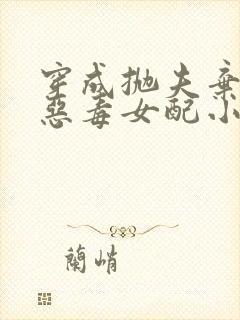 穿成抛夫棄
惡毒女配小
蘭峭